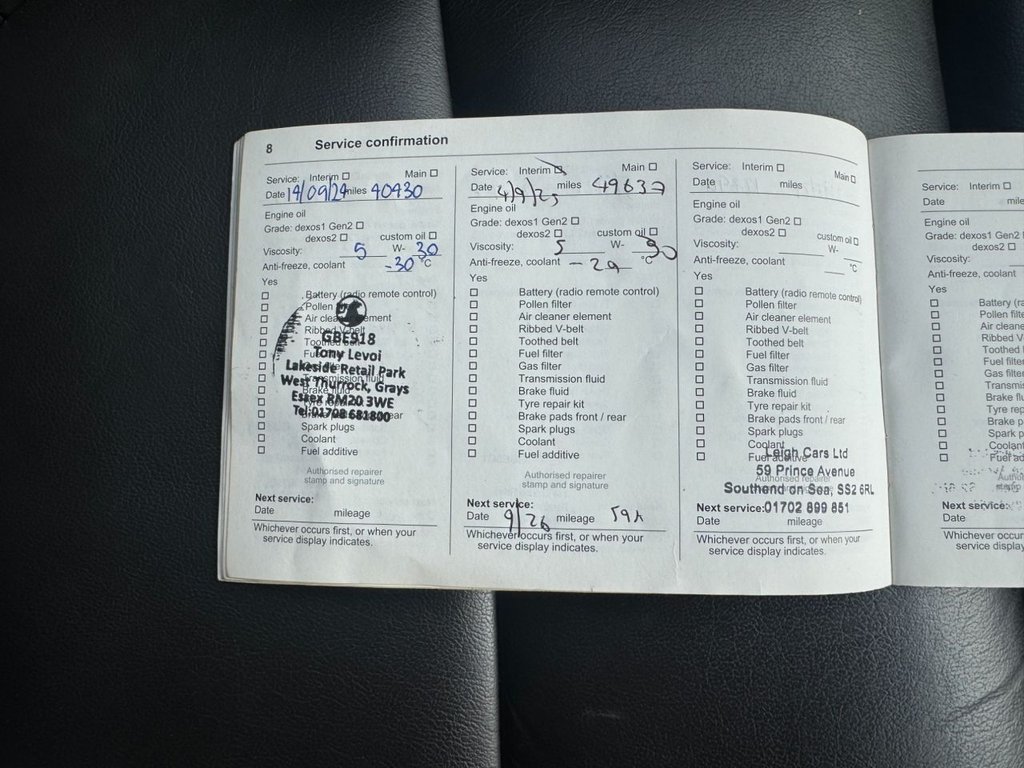 8 Service confirmation
Service: Interim ☐ Main ☐
Date 14/09/24 miles 40430
Engine oil
Grade: dexos1 Gen2 ☐
dexos2 ☐ custom oil ☐
Viscosity: 5 W- 30
Anti-freeze, coolant -30 °C
Yes
☐ Battery (radio remote control)
☐ Pollen
☐ Air cleaner element
☐ Ribbed V-belt
☐ Toothed belt
☐ Fuel
☐
☐ Transmission fluid
☐ Brake fluid
☐ Tyre repair
☐ rear
☐ Spark plugs
☐ Coolant
☐ Fuel additive
GBE918
Tony Levoi
Lakeside Retail Park
West Thurrock, Grays
Essex RM20 3WE
Tel:01708 681800
Authorised repairer
stamp and signature
Next service:
Date mileage
Whichever occurs first, or when your
service display indicates.
Service: Interim ☐ Main ☐
Date 4/9/25 miles 49637
Engine oil
Grade: dexos1 Gen2 ☐
dexos2 ☐ custom oil ☐
Viscosity: 5 W- 30
Anti-freeze, coolant -29 °C
Yes
☐ Battery (radio remote control)
☐ Pollen filter
☐ Air cleaner element
☐ Ribbed V-belt
☐ Toothed belt
☐ Fuel filter
☐ Gas filter
☐ Transmission fluid
☐ Brake fluid
☐ Tyre repair kit
☐ Brake pads front / rear
☐ Spark plugs
☐ Coolant
☐ Fuel additive
Authorised repairer
stamp and signature
Next service:
Date 9/26 mileage
Whichever occurs first, or when your
service display indicates.
Service: Interim ☐ Main ☐
Date miles
Engine oil
Grade: dexos1 Gen2 ☐
dexos2 ☐ custom oil ☐
Viscosity: W-
Anti-freeze, coolant °C
Yes
☐ Battery (radio remote control)
☐ Pollen filter
☐ Air cleaner element
☐ Ribbed V-belt
☐ Toothed belt
☐ Fuel filter
☐ Gas filter
☐ Transmission fluid
☐ Brake fluid
☐ Tyre repair kit
☐ Brake pads front / rear
☐ Spark plugs
☐ Coolant
☐ Fuel additive
Leigh Cars Ltd
59 Prince Avenue
Authorised repairer
Southend on Sea, SS2 6RL
Next service: 01702 899 851
Date mileage
Whichever occurs first, or when your
service display indicates.
Service: Interim ☐
Date mile
Engine oil
Grade: dexos1 Gen2
dexos2 ☐
Viscosity:
Anti-freeze, coolant
Yes
☐ Battery (ra
☐ Pollen filte
☐ Air cleane
☐ Ribbed V
☐ Toothed
☐ Fuel filter
☐ Gas filter
☐ Transmis
☐ Brake flu
☐ Tyre rep
☐ Brake p
☐ Spark p
☐ Coolant
☐ Fuel ad
Next service:
Date
Whichever occur
service display